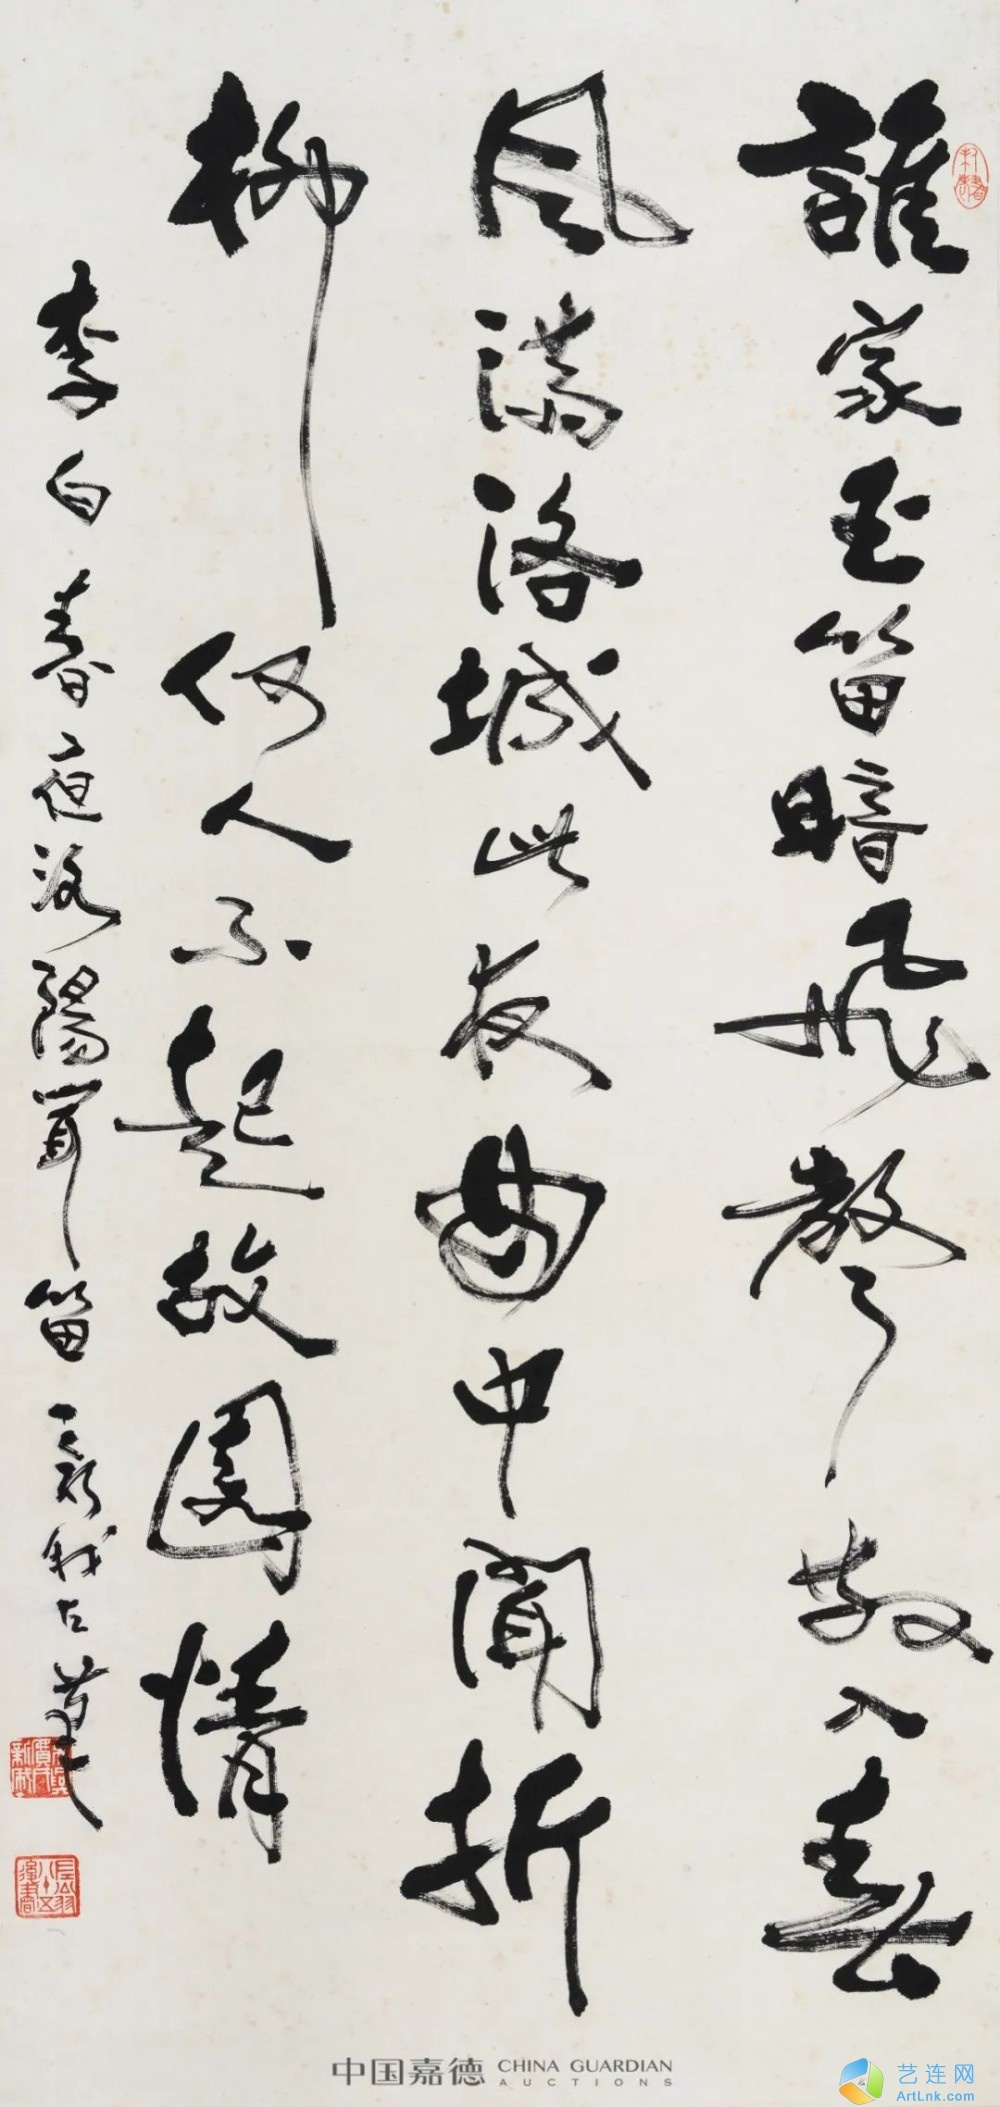 誰家玉笛暗飛聲散入春
風滿洛城此夜曲中聞折
柳何人不起故園情
李白春夜洛陽聞笛 新我左筆
中国嘉德 CHINA GUARDIAN
AUCTIONS
艺连网
ArtLnk.com